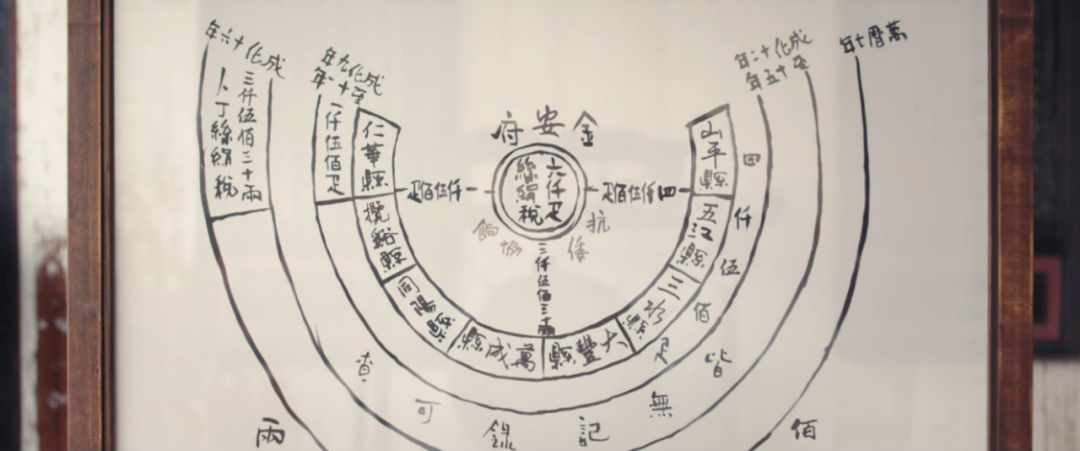 萬曆七年
成化十二年
至十五年
成化九年
至十一年
成化十六年
金安府
六仟疋
絲絹稅
四仟伍佰疋
一仟伍佰疋
三仟伍佰三十兩
抗倭協餉
山平縣
五江縣
三水縣
大豐縣
萬成縣
同陽縣
攬谿縣
仁華縣
四仟伍佰疋
一仟伍佰疋
皆無記錄可查
三仟伍佰三十兩
人丁絲絹稅
佰
兩